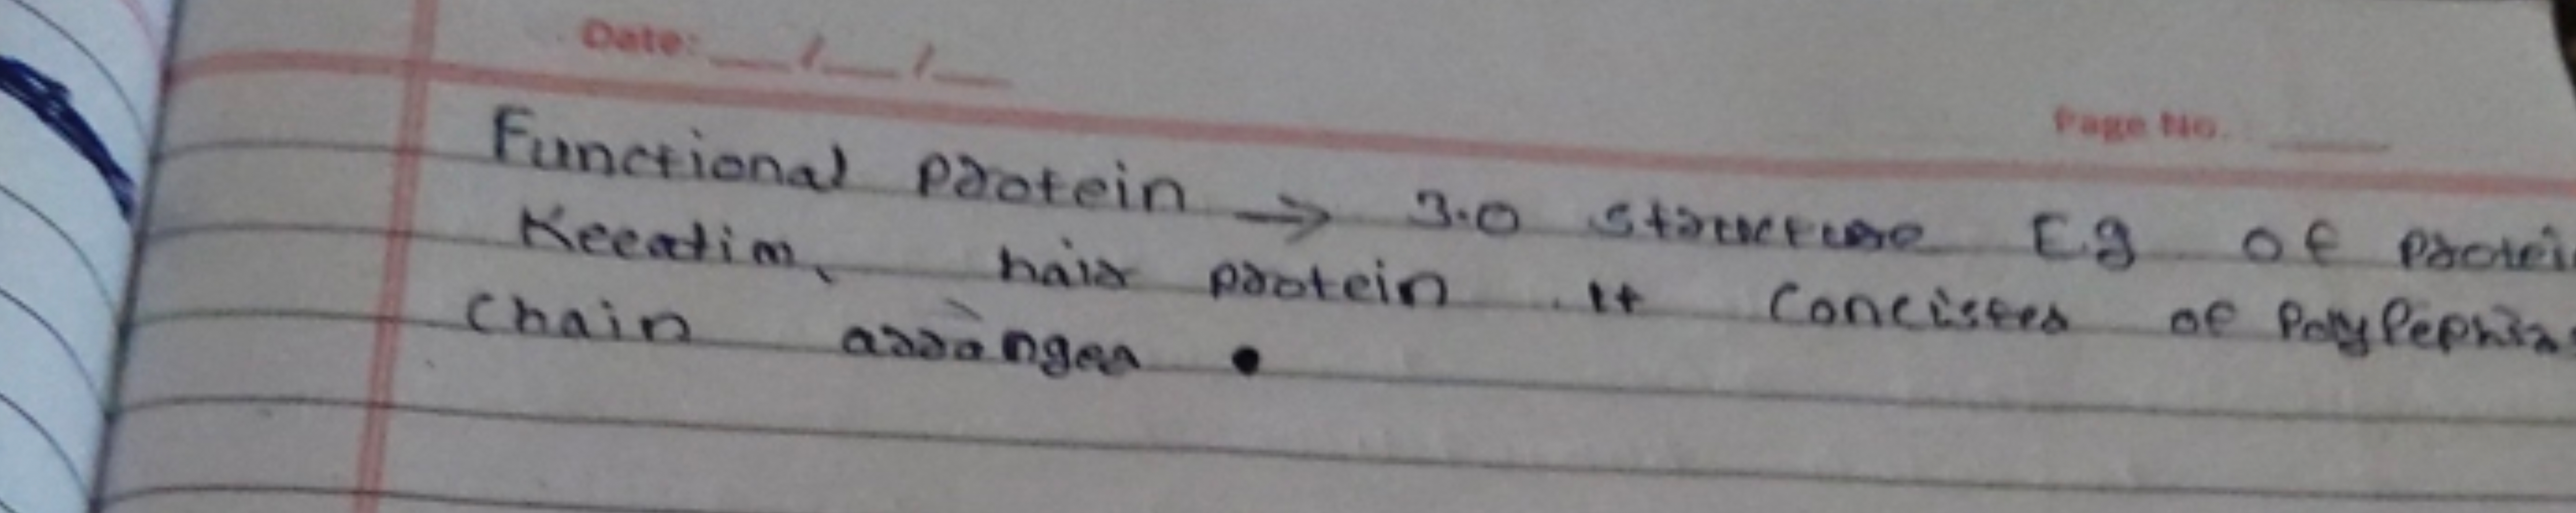 Date: __/__/__
Page No. ____
Functional Protein → 3.0 structure E.g of Protei
Keeatim, hair protein It Concistes of Poly
Chain arranges.